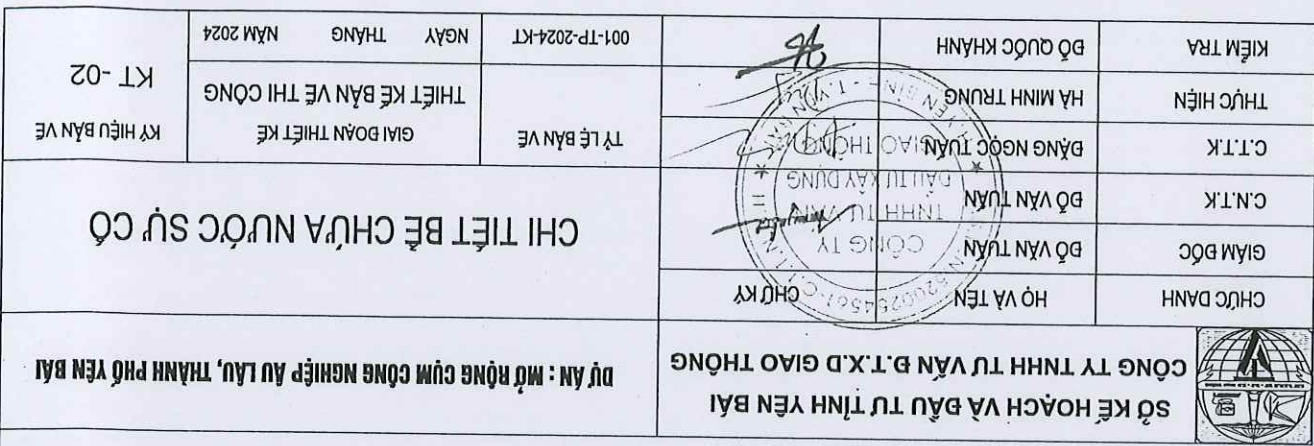 SỞ KẾ HOẠCH VÀ ĐẦU TƯ TỈNH YÊN BÁI
CÔNG TY TNHH TƯ VẤN Đ.T.X.D GIAO THÔNG
DỰ ÁN : MỞ RỘNG CỤM CÔNG NGHIỆP ÂU LÂU, THÀNH PHỐ YÊN BÁI
CHỨC DANH HỌ VÀ TÊN CHỮ KÝ
GIÁM ĐỐC ĐỖ VĂN TUÂN
C.N.T.K ĐỖ VĂN TUÂN
C.T.T.K ĐẶNG NGỌC TUÂN
THỰC HIỆN HÀ MINH TRUNG
KIỂM TRA ĐỖ QUỐC KHÁNH
CÔNG TY
TNHH TƯ VẤN
ĐẦU TƯ XÂY DỰNG
GIAO THÔNG
CHI TIẾT BỂ CHỨA NƯỚC SỰ CỐ
TỶ LỆ BẢN VẼ
001-TP-2024-KT
GIAI ĐOẠN THIẾT KẾ
THIẾT KẾ BẢN VẼ THI CÔNG
NGÀY THÁNG NĂM 2024
KÝ HIỆU BẢN VẼ
KT -02